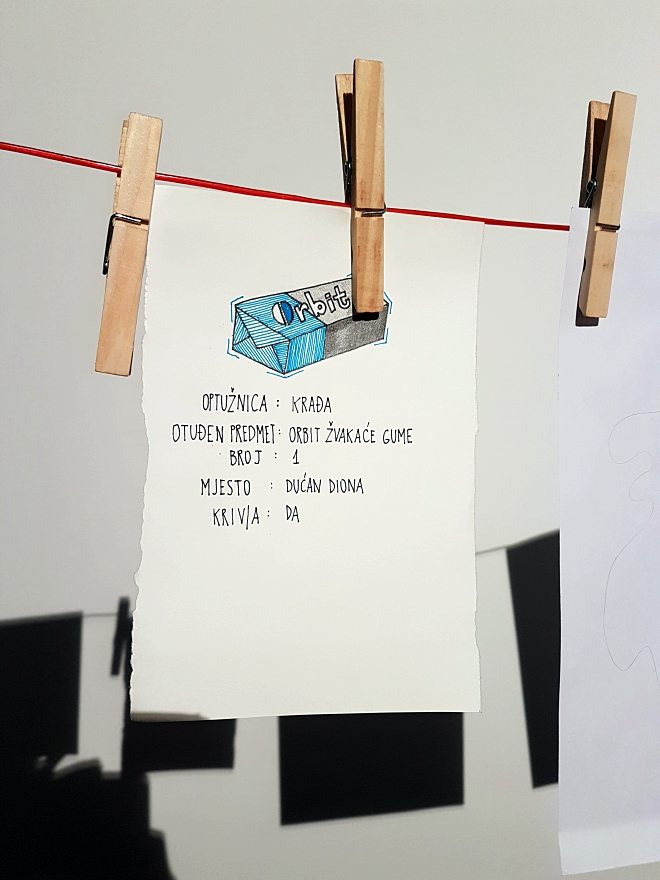 Orbit
OPTUŽNICA : KRAĐA
OTUĐEN PREDMET: ORBIT ŽVAKAĆE GUME
BROJ : 1
MJESTO : DUĆAN DIONA
KRIV/A : DA